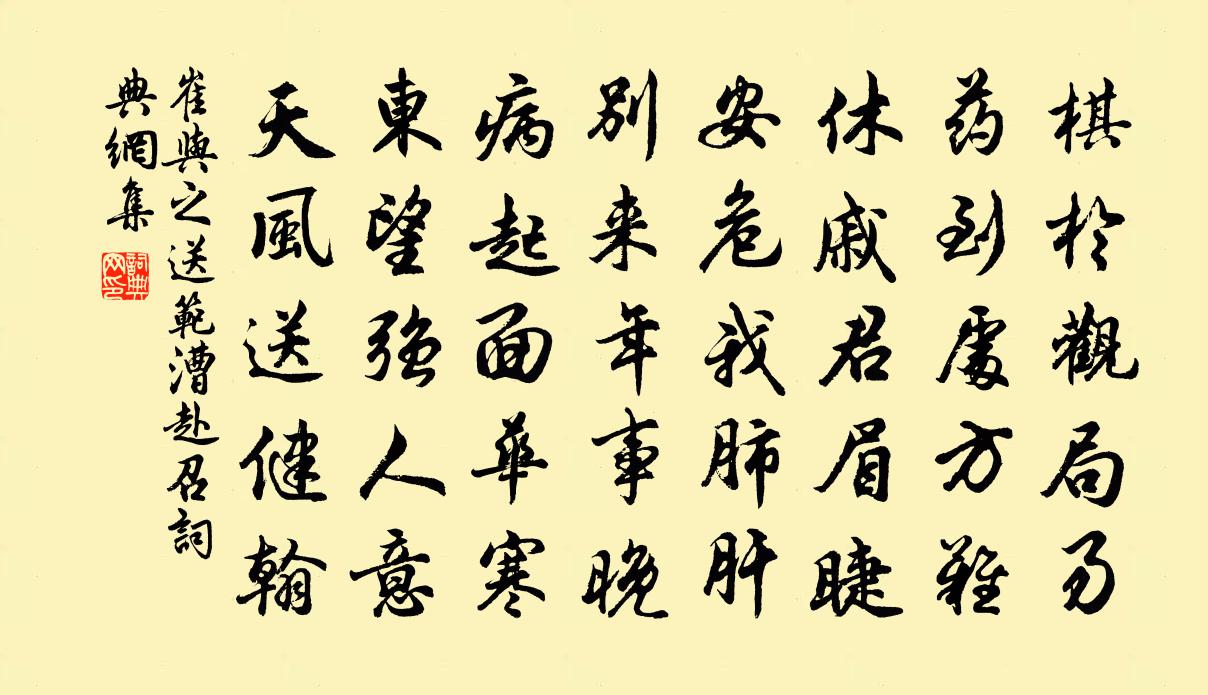 棋於觀局易
药到處方難
休戚君眉睫
安危我肺肝
別来年事晚
病起面華寒
東望强人意
天風送健翰
崔與之送範漕赴召詞
典網集
詞典
网印